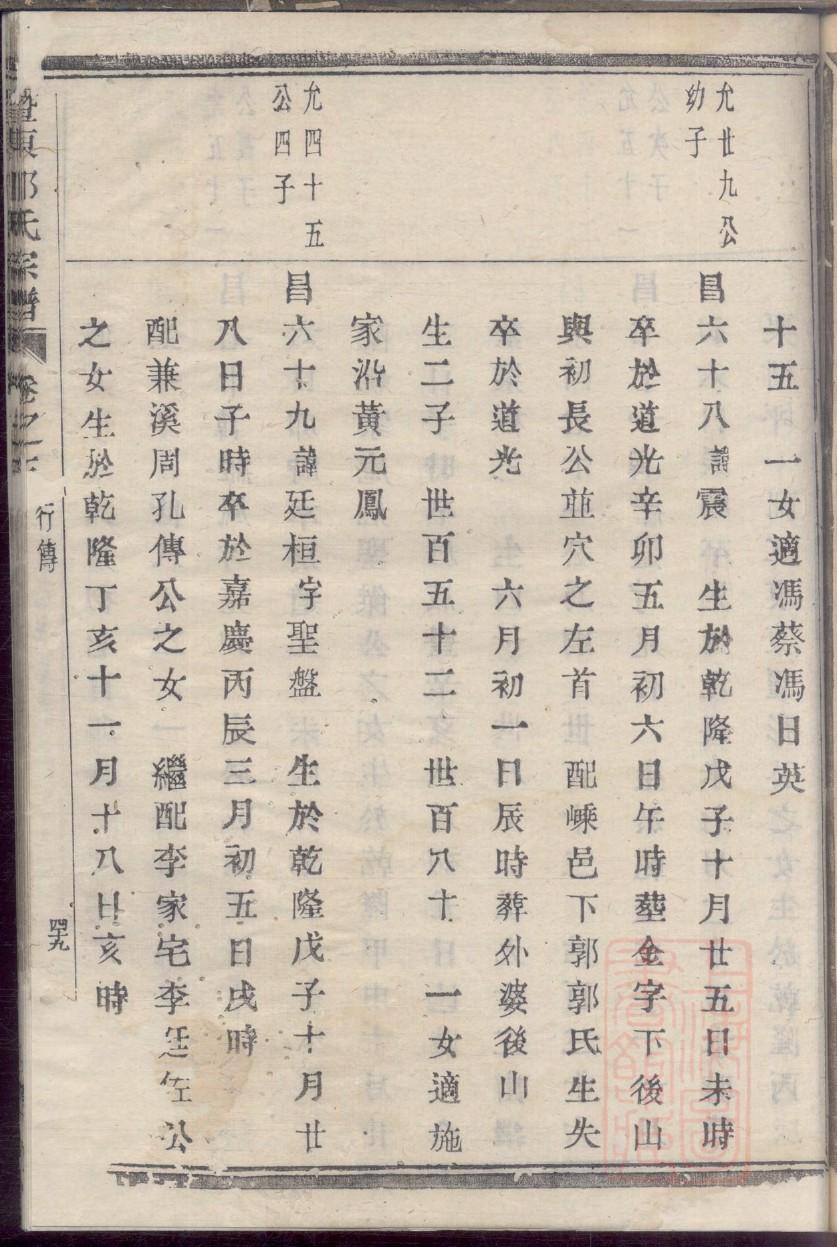 十五 一女適馮蔡馮日英
允廿九公
幼子
昌六十八諱震 生於乾隆戊子十月廿五日未時
卒於道光辛卯五月初六日午時塟金字下後山
與初長公並穴之左首 配嵊邑下郭郭氏生失
卒於道光 六月初一日辰時葬外婆後山
生二子 世百五十二 世百八十 一女適施
家沿黃元鳳
允四十五
公四子
昌六十九諱廷桓字聖盤 生於乾隆戊子十月廿
八日子時卒於嘉慶丙辰三月初五日戌時
配兼溪周孔傳公之女 繼配李家宅李廷佐公
之女生於乾隆丁亥十一月十八日亥時
暨東 氏宗譜 卷之 行傳 四九